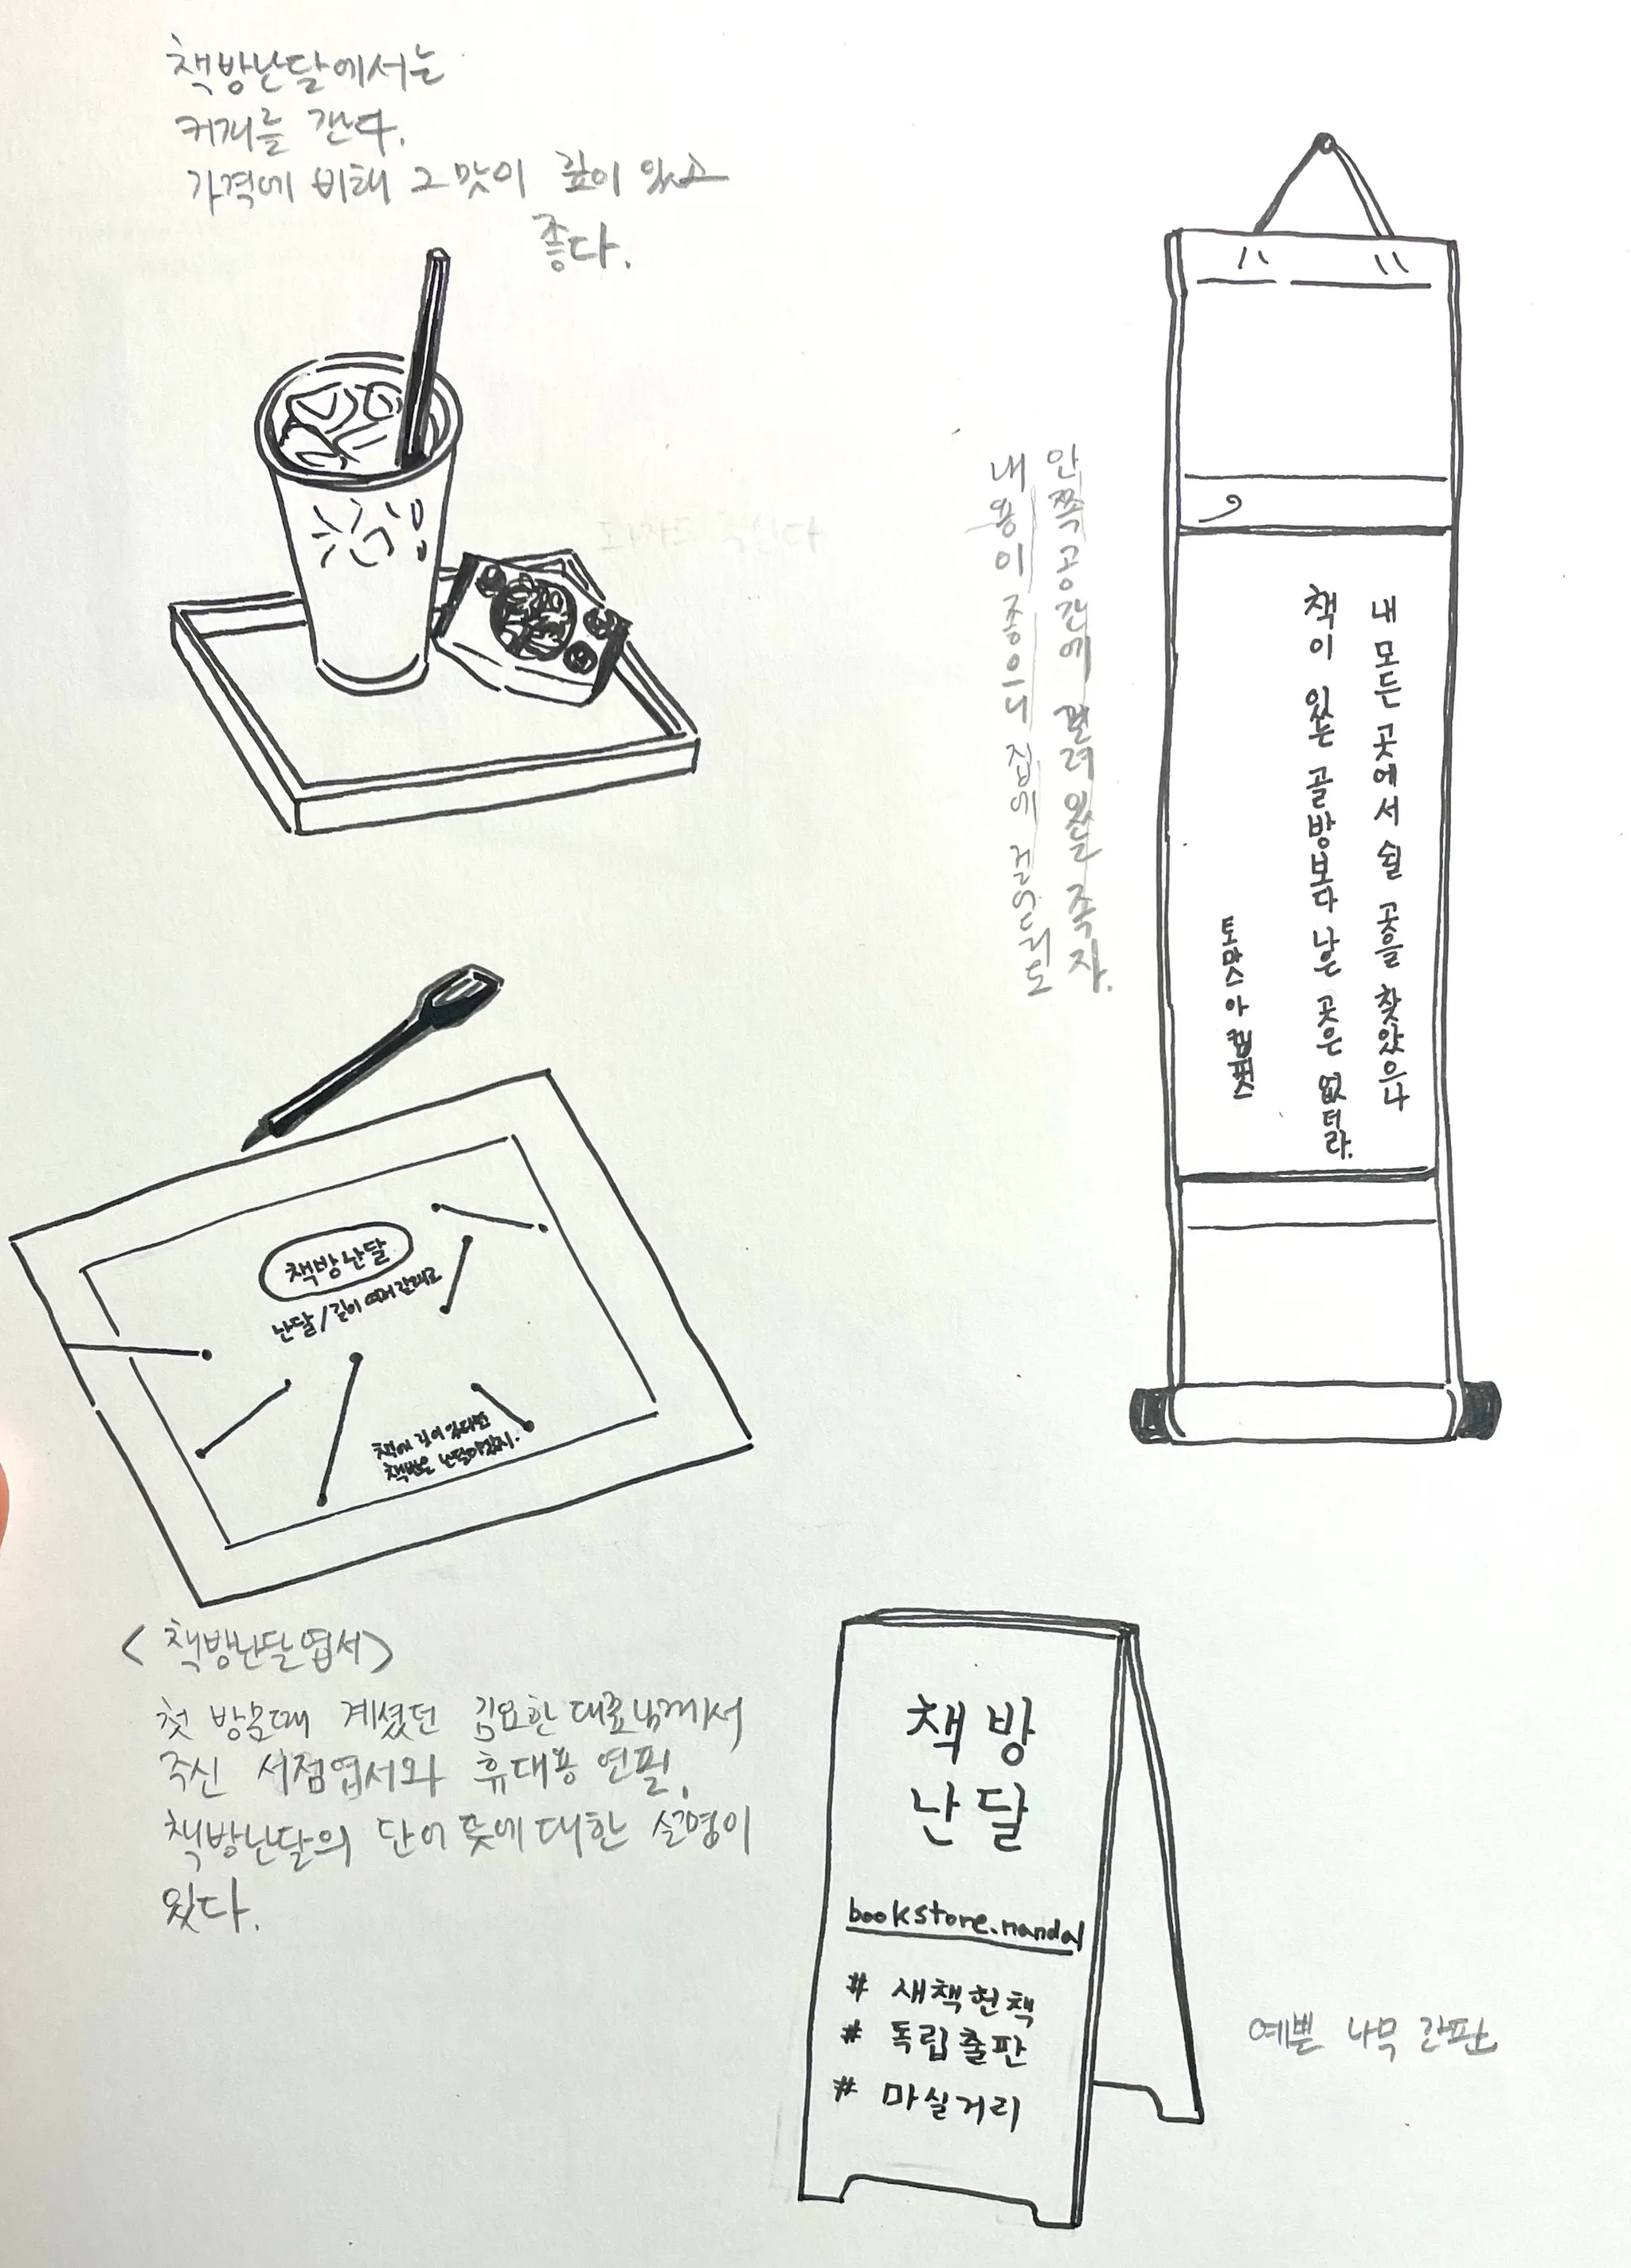 책방난달에서는
커피를 간다.
가격에 비해 그 맛이 깊이 있고
좋다.
안쪽공간에 걸려있는 족자.
내용이 좋으니 집에
내 모든 곳에서 쉴 곳을 찾았으나
책이 있는 골방보다 나은 곳은 없더라.
토마스 아 켐퍼스
책방난달
난달/길이 여러 갈래로
책에 길이 있다면
책방은 난달이겠지.
<책방난달엽서>
첫 방문때 계셨던 김요한대표님께서
주신 서점엽서와 휴대용 연필.
책방난달의 단어 뜻에 대한 설명이
있다.
책방
난달
bookstore.nandal
# 새책헌책
# 독립출판
# 마실거리
예쁜 나무 간판